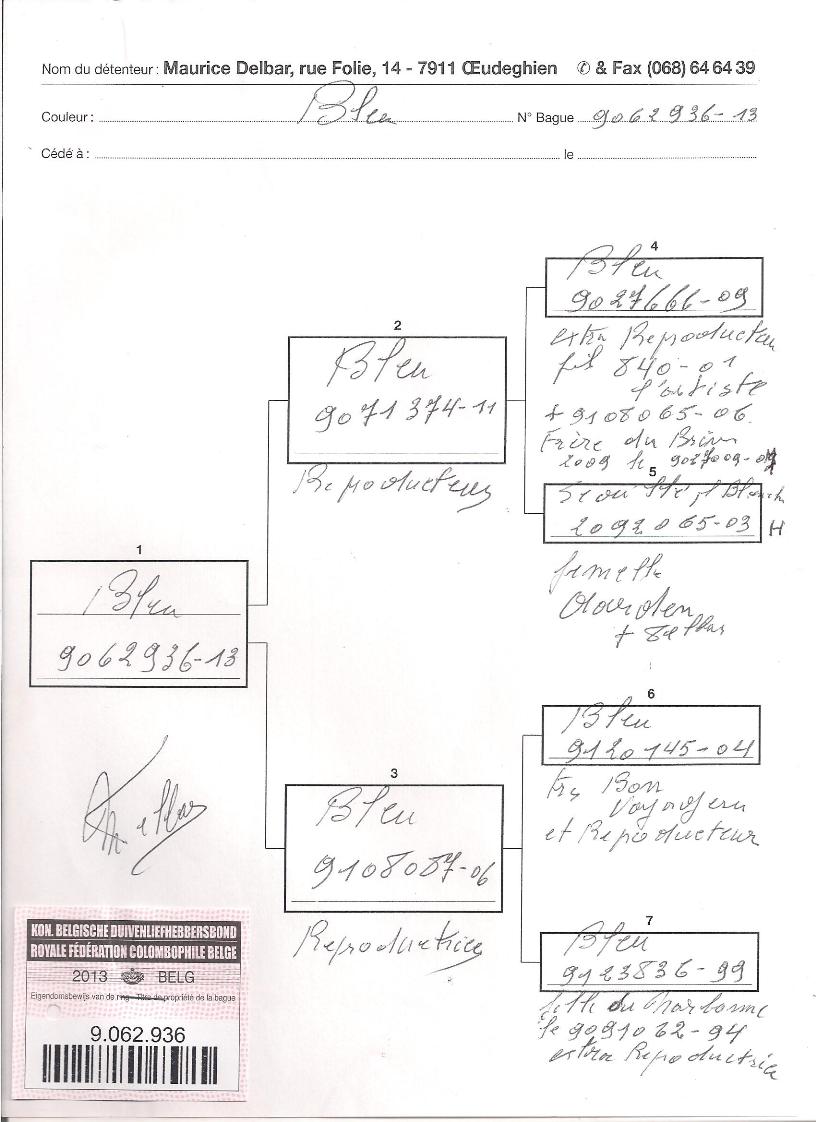 Nom du détenteur : Maurice Delbar, rue Folie, 14 - 7911 Œudeghien ✆ & Fax (068) 64 64 39
Couleur : Bleu N° Bague 9062936-13
Cédé à : le
4
Bleu
9027666-09
extra Reproducteur
fils 840-01
l'artiste
+ 9108065-06
Frère du Brive
2009 le 9027009-07
2
Bleu
9071374-11
Reproducteur
5
2092065-03 H
femelle
Aarden
+ Delbar
1
Bleu
9062936-13
6
Bleu
9120145-04
Bon
Voyageur
et Reproducteur
3
Bleu
9108087-06
Reproductrice
7
Bleu
9123836-99
fille du Narbonne
le 9091062-94
extra Reproductrice
KON. BELGISCHE DUIVENLIEFHEBBERSBOND
ROYALE FÉDÉRATION COLOMBOPHILE BELGE
2013 BELG
Eigendomsbewijs van de ring - Titre de propriété de la bague
9.062.936